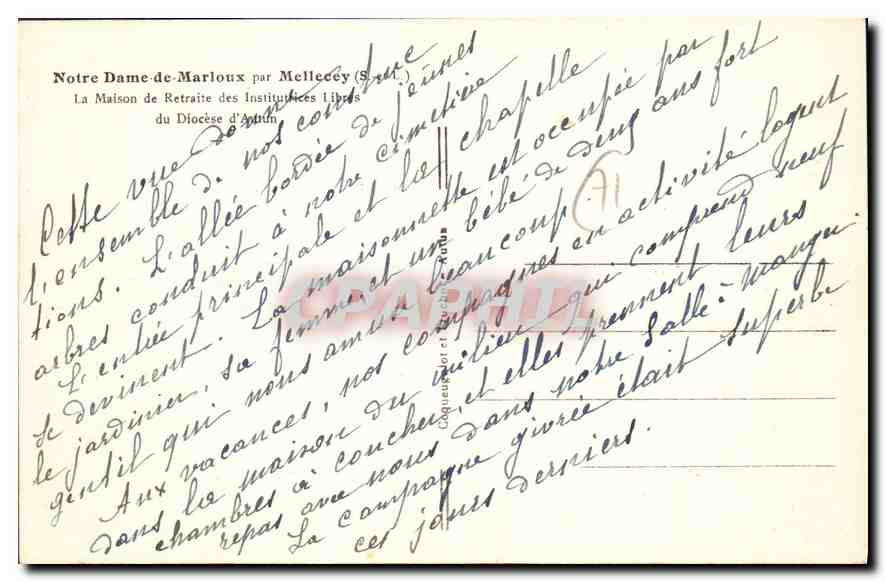 Notre Dame-de-Marloux par Mellecey (S.-et-L.)
La Maison de Retraite des Institutrices Libres
du Diocèse d'Autun
Cette vue donne
l'ensemble de nos construc
tions. L'allée bordée de jeunes
arbres conduit à notre cimetière
L'entrée principale et la chapelle
se devinent. La maisonnette est occupée par
le jardinier, sa femme et un bébé de deux ans fort
gentil qui nous amuse beaucoup.
Aux vacances, nos compagnes en activité logent
dans la maison du milieu qui comprend neuf
chambres à coucher, et elles prennent leurs
repas avec nous dans notre salle-à-manger.
La campagne givrée était superbe
ces jours derniers.
71
Autun
CPAPHIL